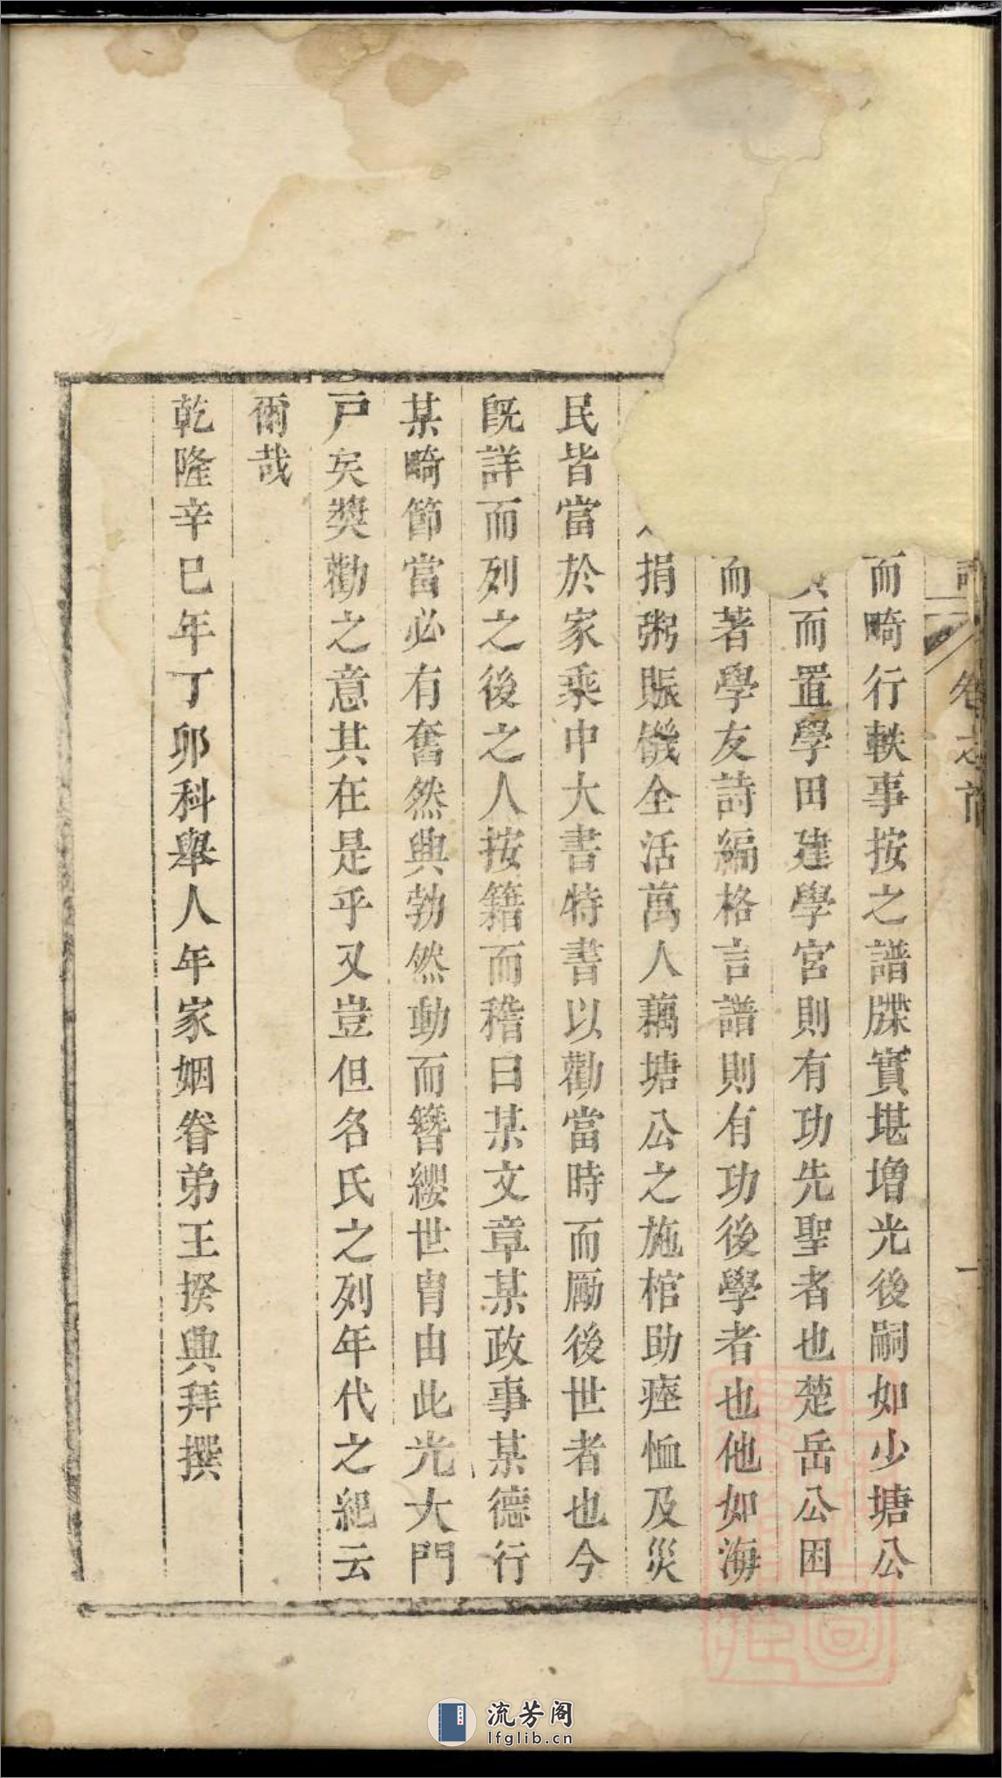 而畸行軼事按之譜牒實堪增光後嗣如少塘公
而置學田建學宮則有功先聖者也楚岳公困
而著學友詩編格言譜則有功後學者也他如海
捐粥賑饑全活萬人藕塘公之施棺助瘞恤及災
民皆當於家乘中大書特書以勸當時而勵後世者也今
旣詳而列之後之人按籍而稽曰某文章某政事某德行
某畸節當必有奮然興勃然動而簪纓世胄由此光大門
戸矣奬勸之意其在是乎又豈但名氏之列年代之紀云
爾哉
乾隆辛巳年丁卯科舉人年家姻眷弟王揆典拜撰
卷之首
一
流芳阁
lfglib.cn